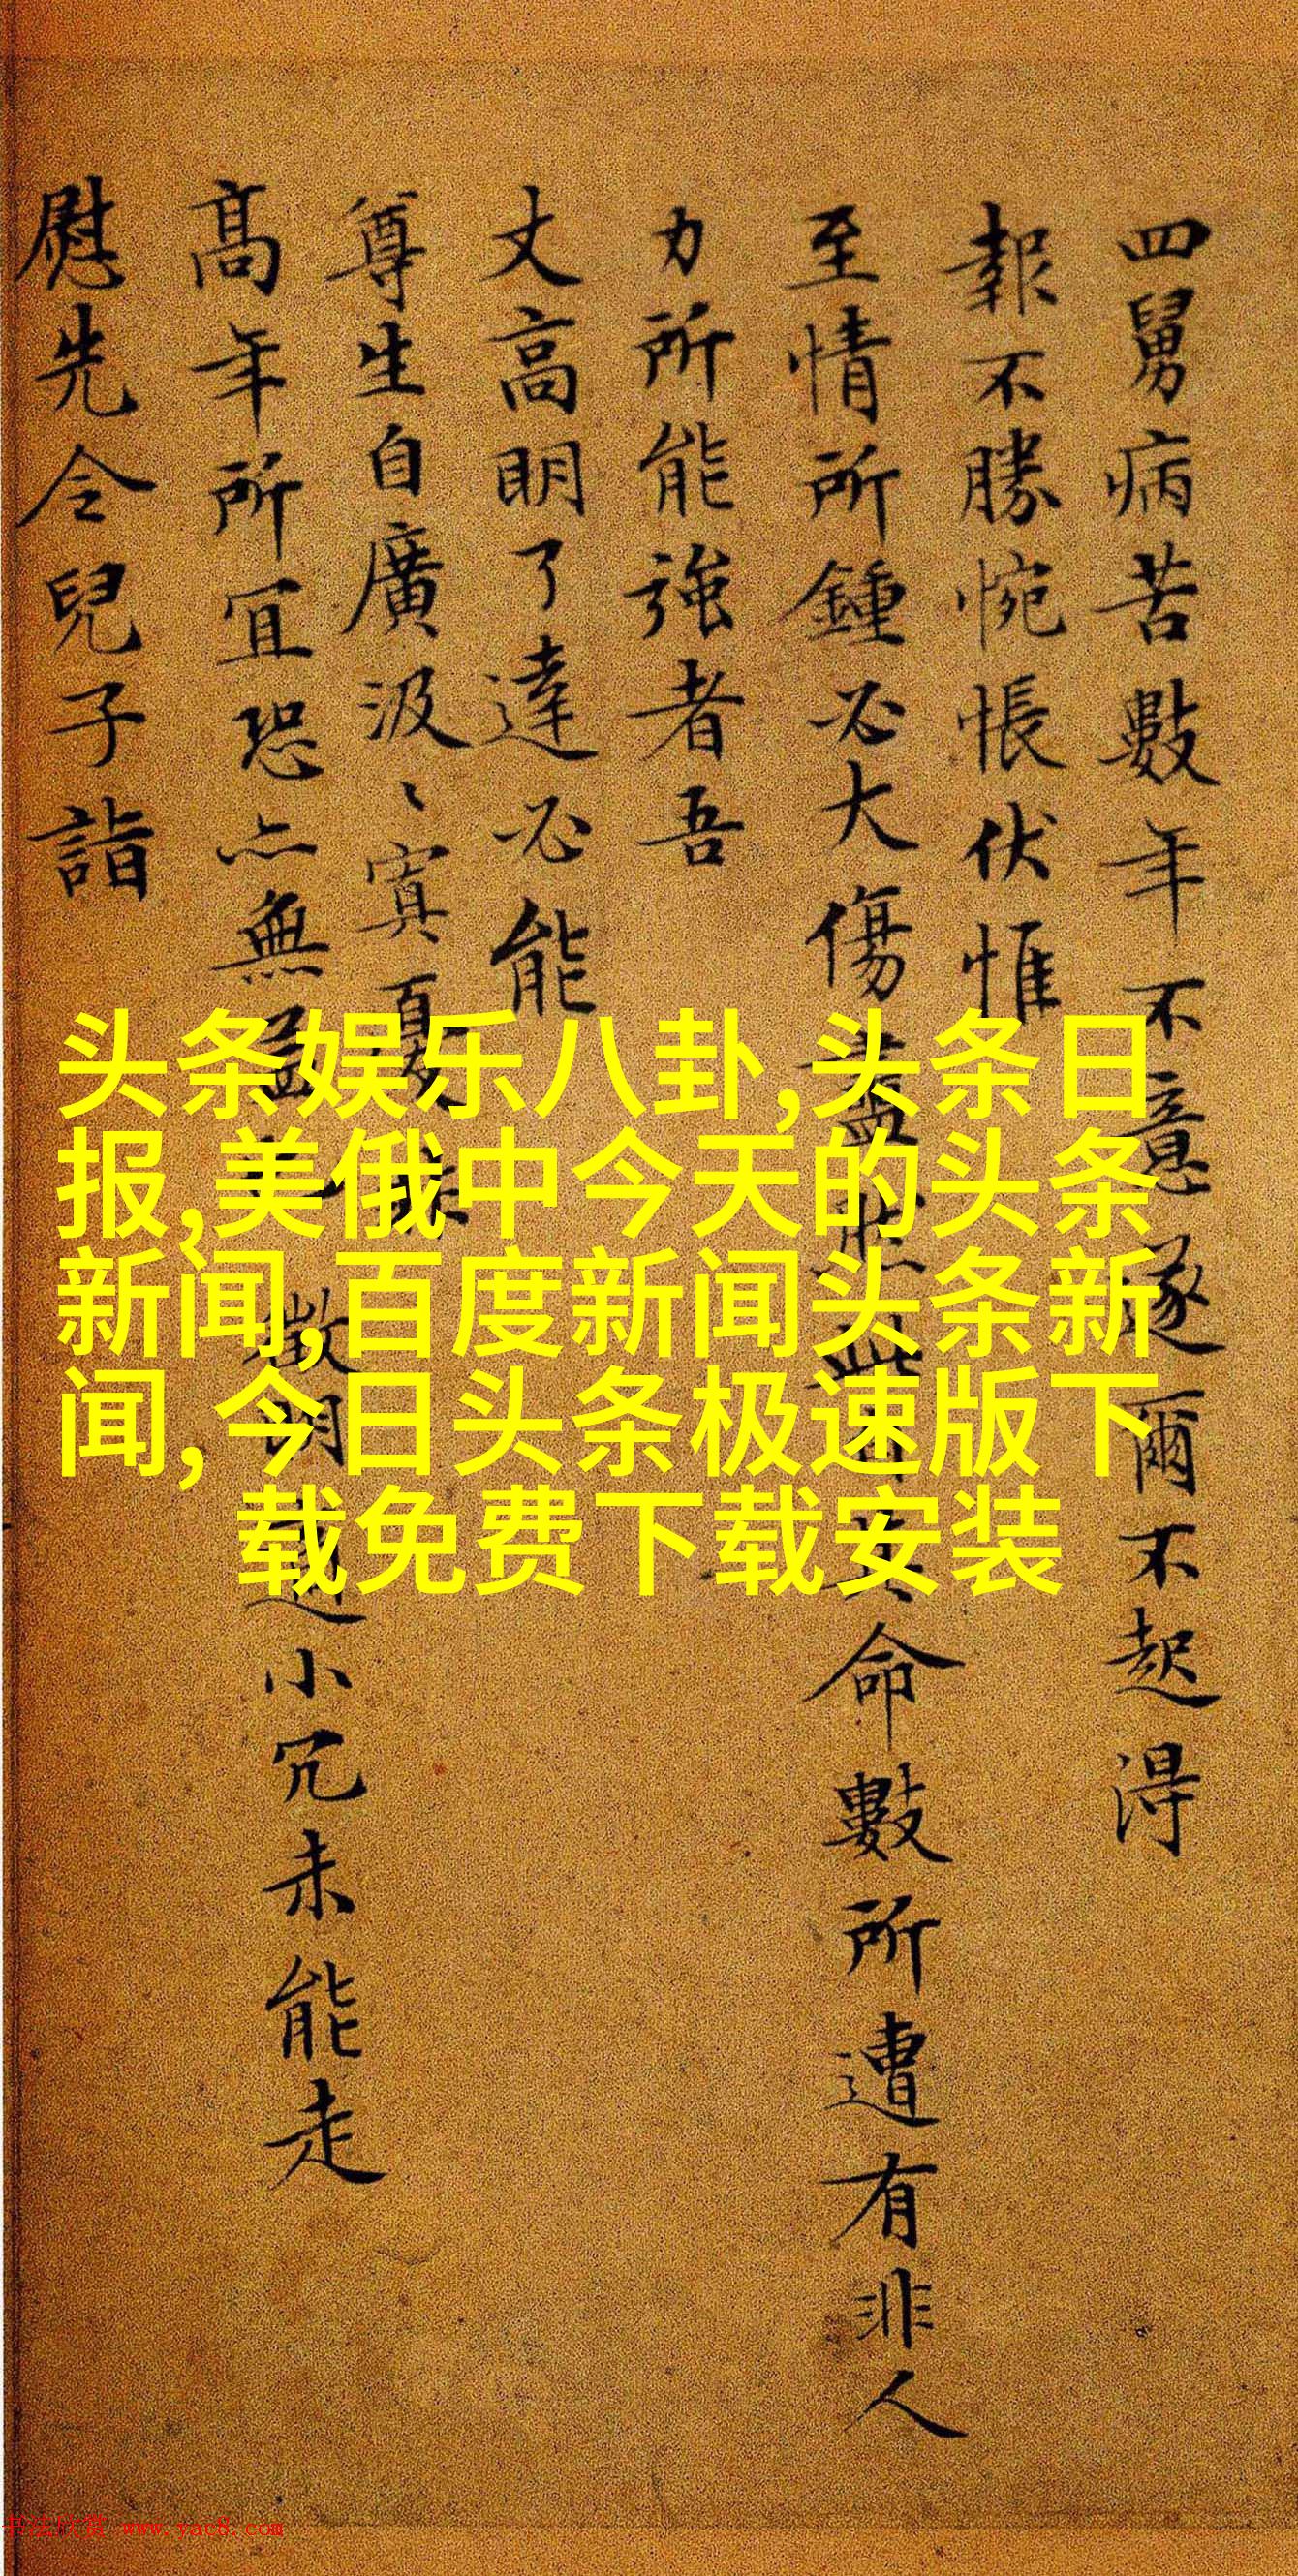 四舅病苦數年不意遂爾不起得
報不勝惋悵伏惟
至情所鍾必大傷
命數所遭有非人
力所能強者吾
丈高明了達必能
尊生自廣汲〻寘
高年所宜恐亦無
小冗未能走
慰先令兒子詣
头条娱乐八卦,头条日
报,美俄中今天的头条
新闻,百度新闻头条新
闻,今日头条极速版下
载免费下载安装
书法欣赏 www.yac8.com